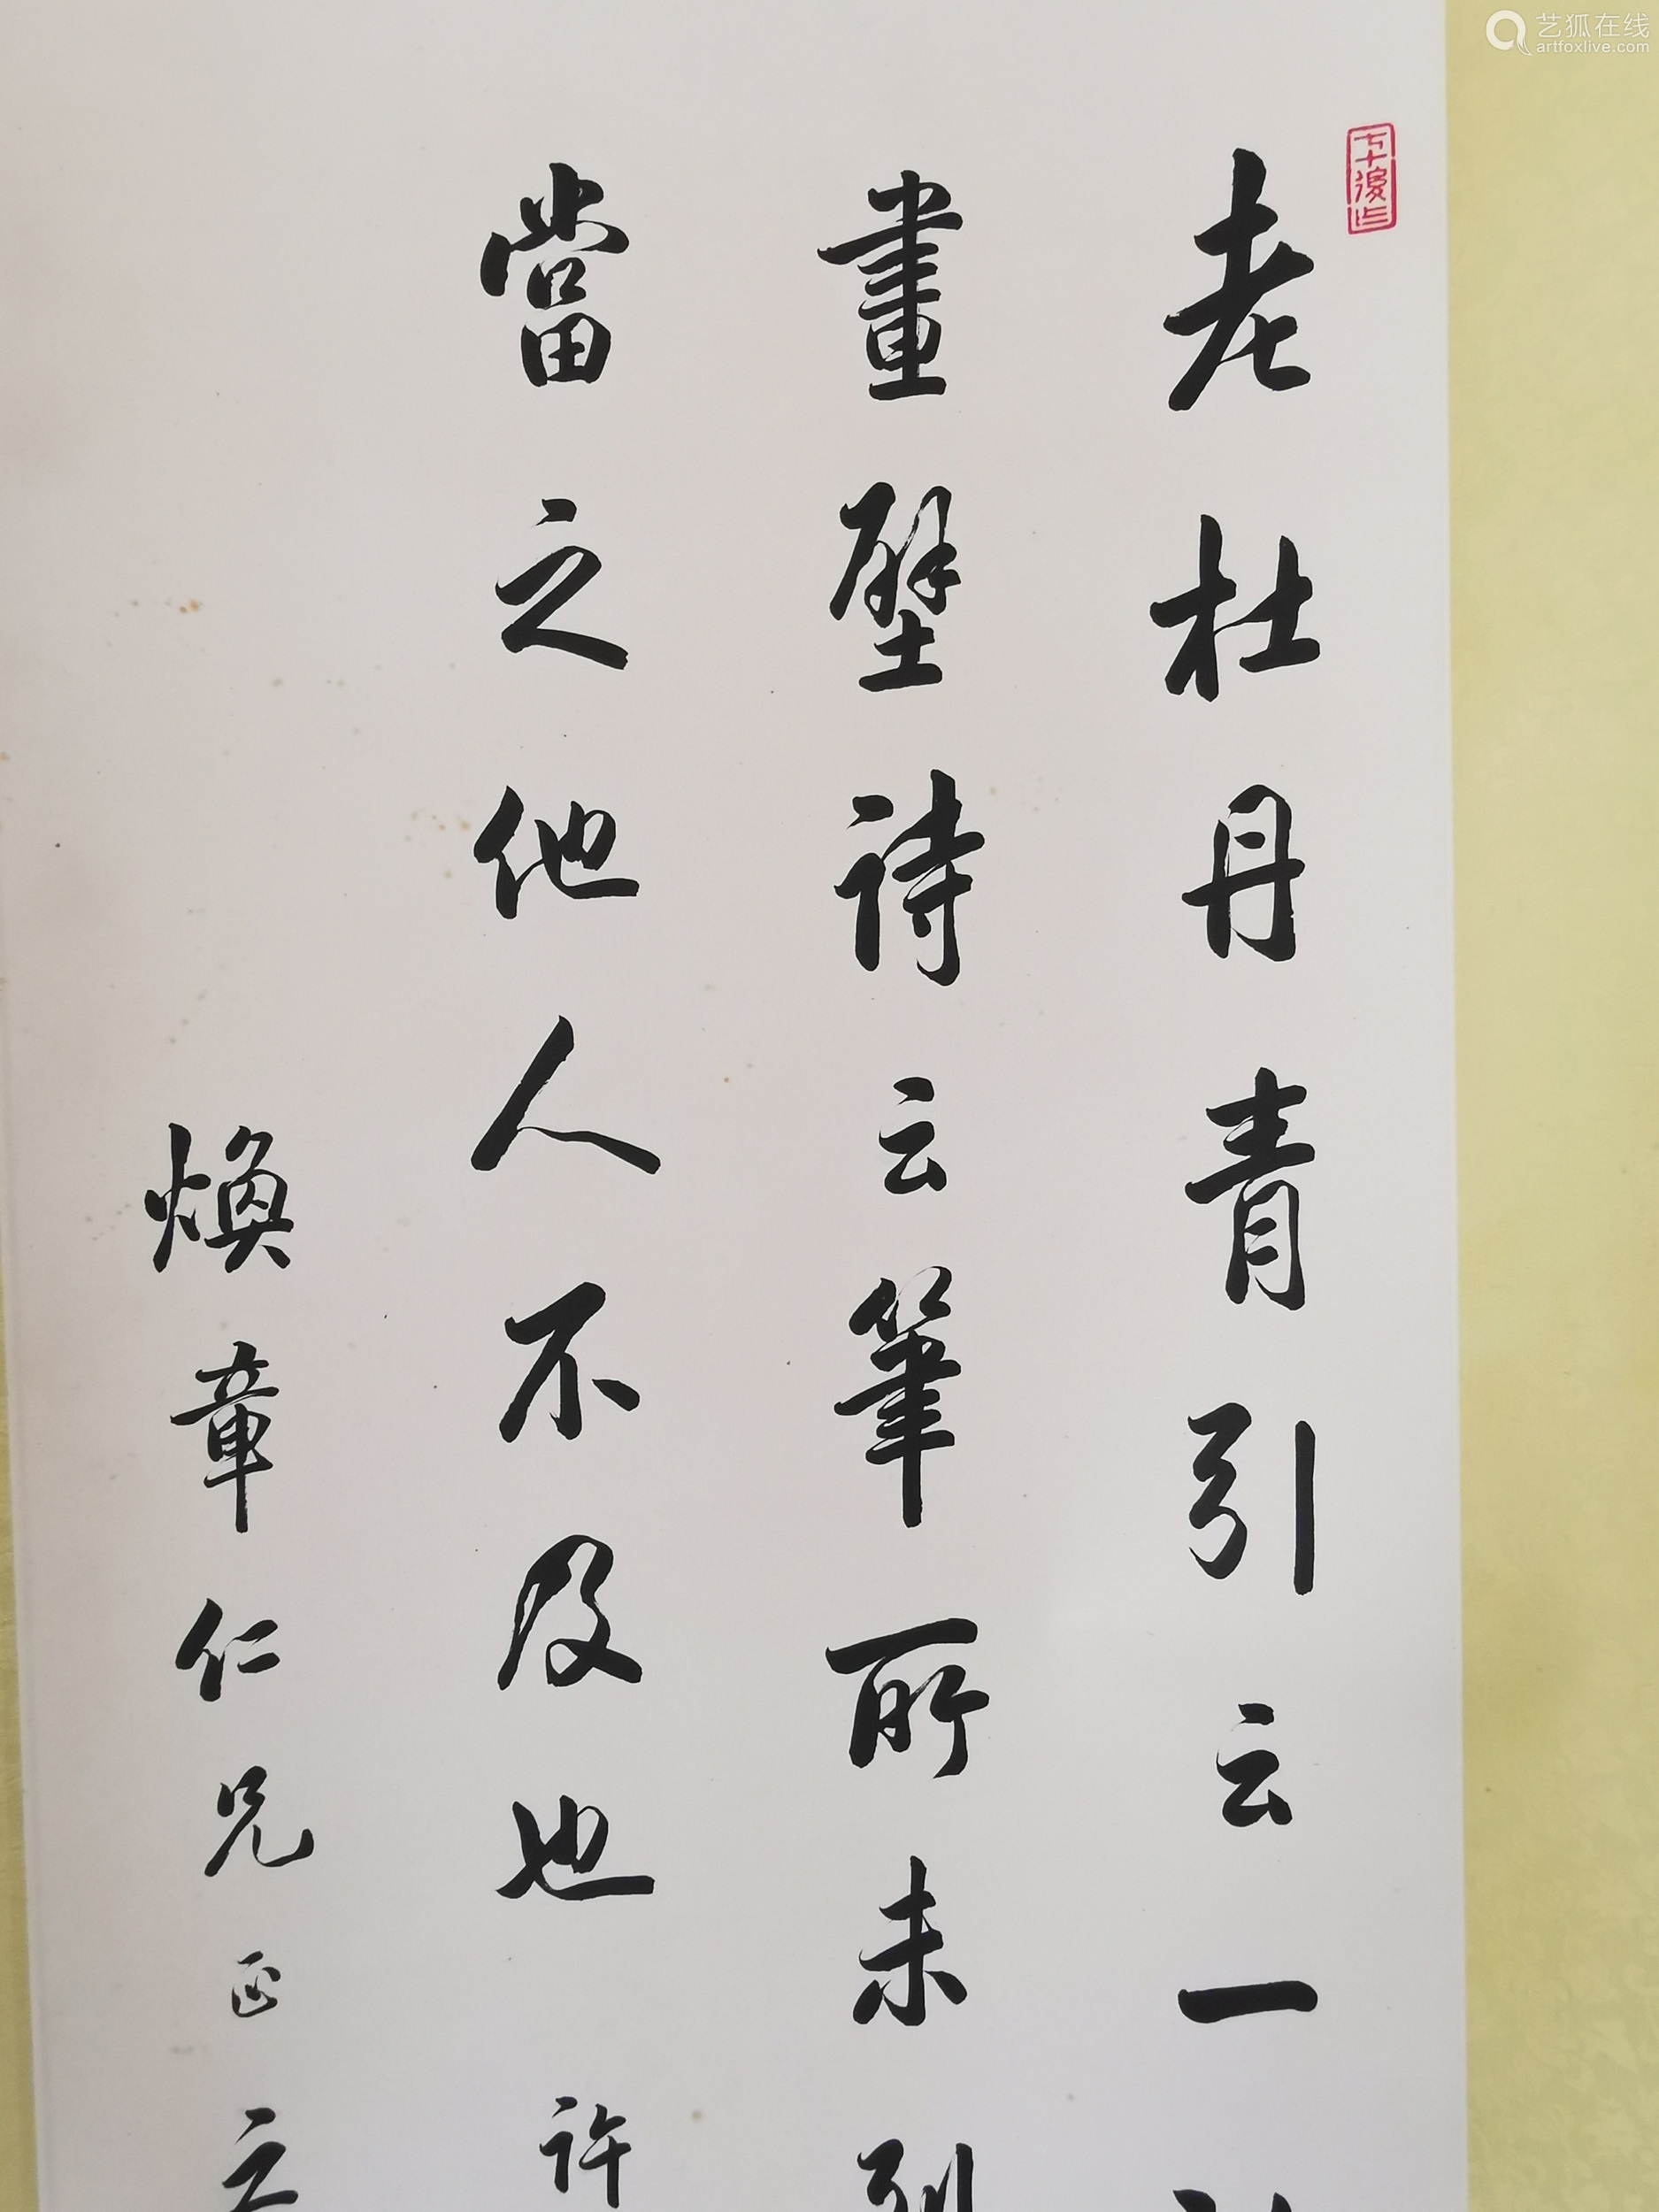 老杜丹青引云一
畫壁詩云筆所未到
當之他人不及也 許
煥章仁兄正之
七十後作
艺狐在线
artfoxlive.com